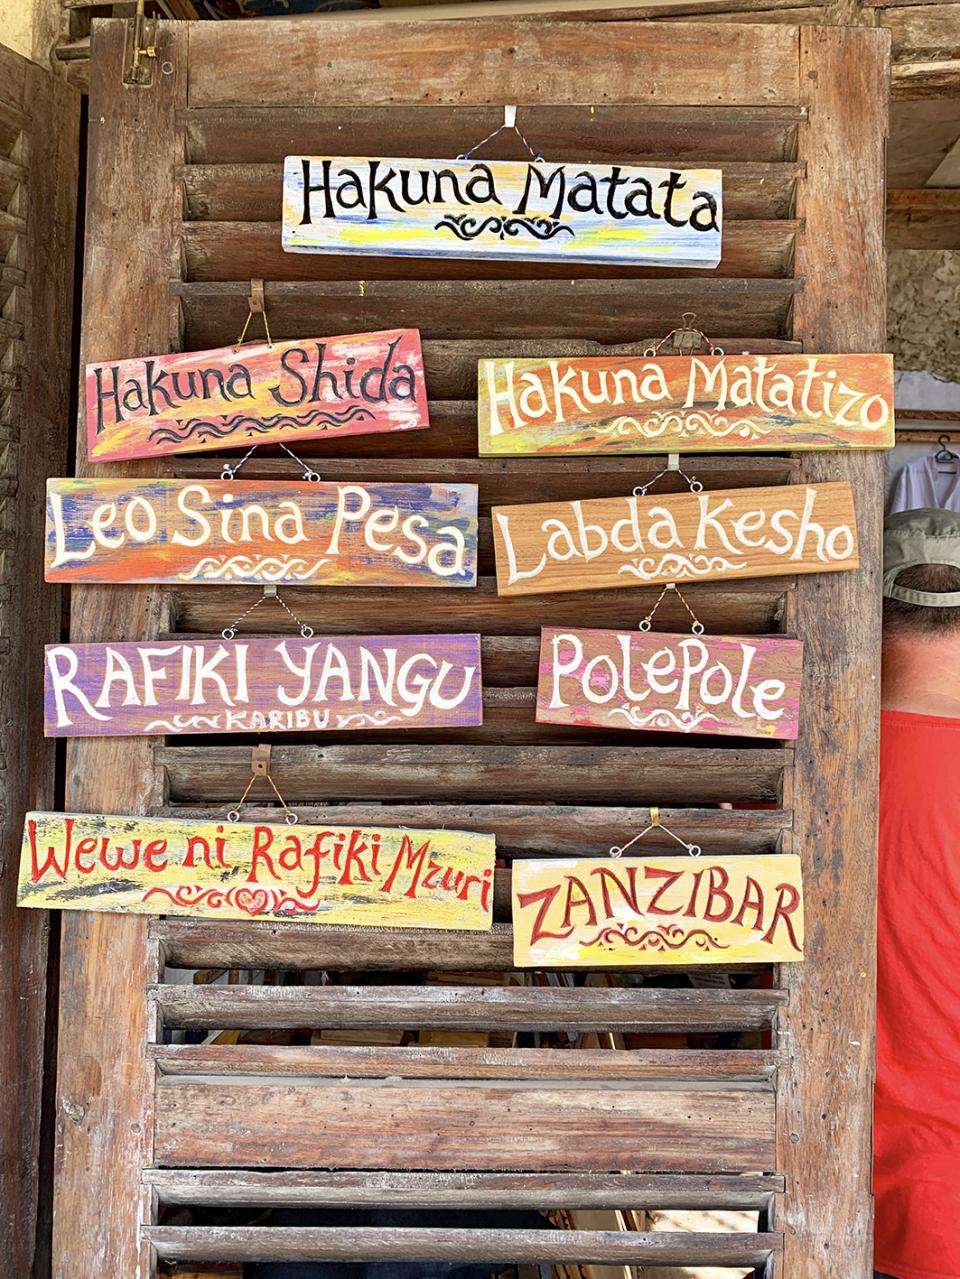 Hakuna Matata
Hakuna Shida
Hakuna Matatizo
Leo Sina Pesa
Labda Kesho
RAFIKI YANGU
KARIBU
PolePole
Wewe ni Rafiki Mzuri
ZANZIBAR